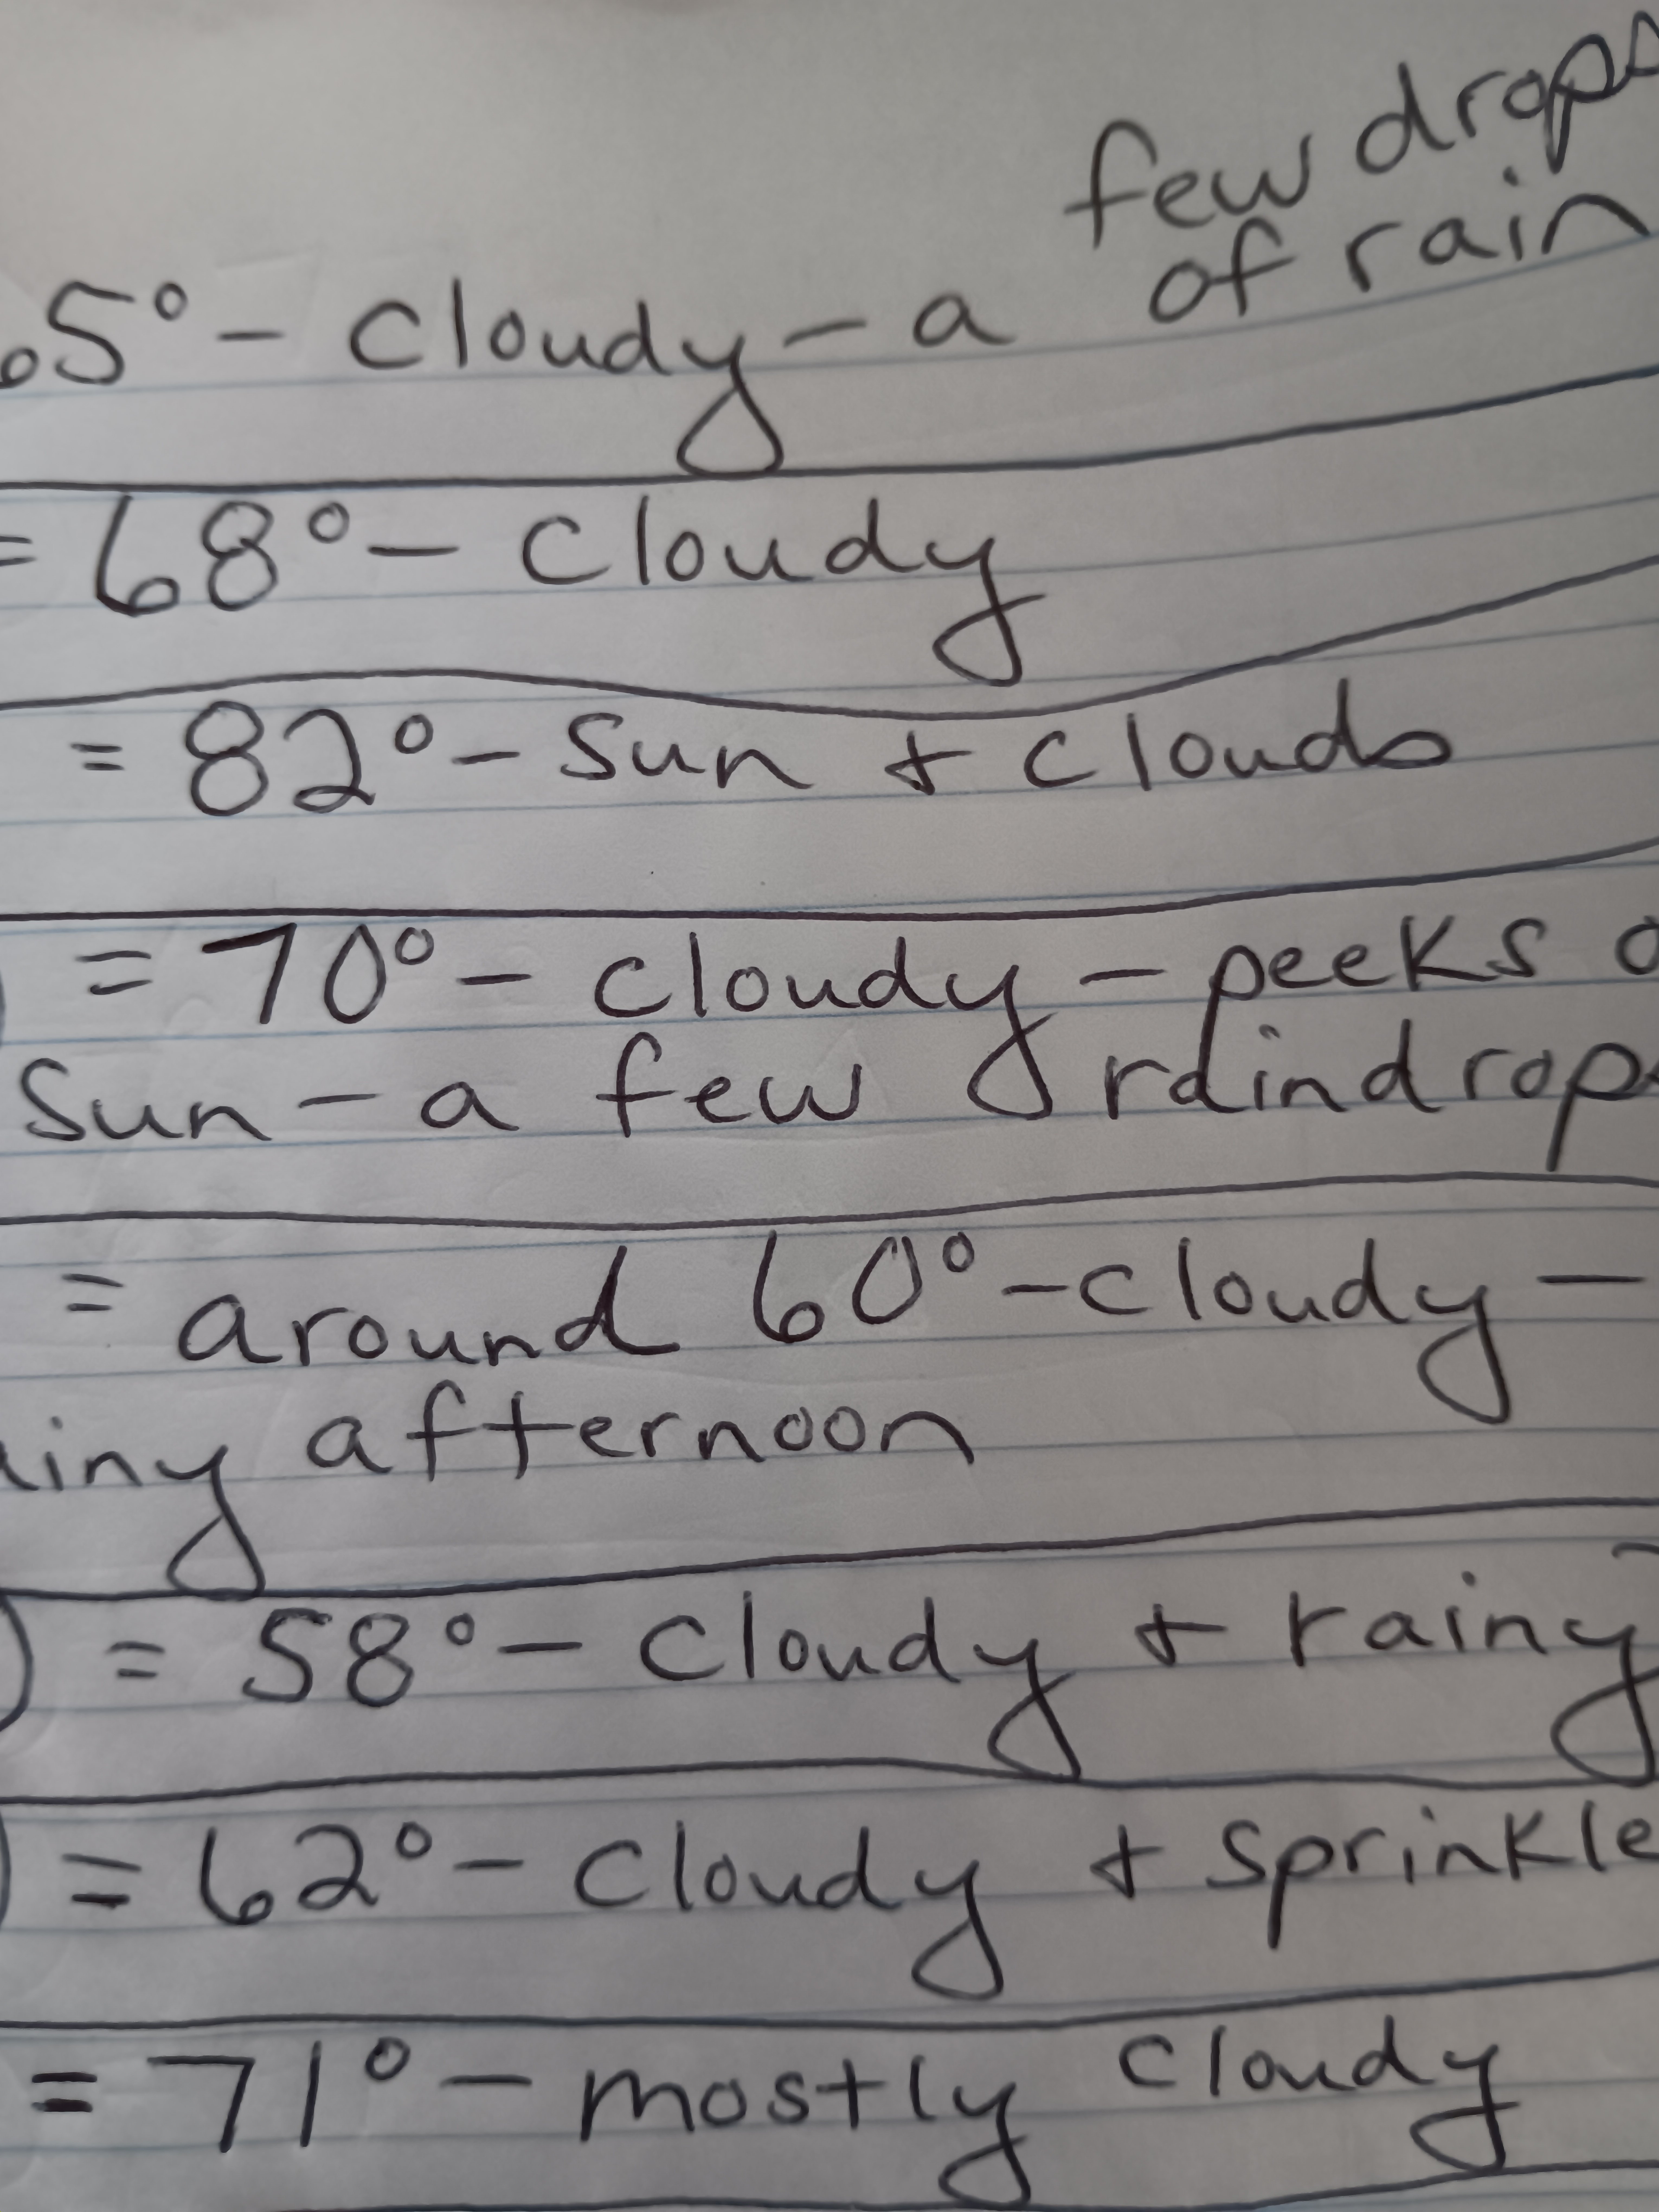 few drops
of rain
65° - cloudy - a
= 68° - cloudy
= 82° - sun + clouds
= 70° - cloudy - peeks o
sun - a few raindrops
= around 60° - cloudy -
ainy afternoon
) = 58° - cloudy + rainy
) = 62° - cloudy + sprinkle
= 71° - mostly cloudy